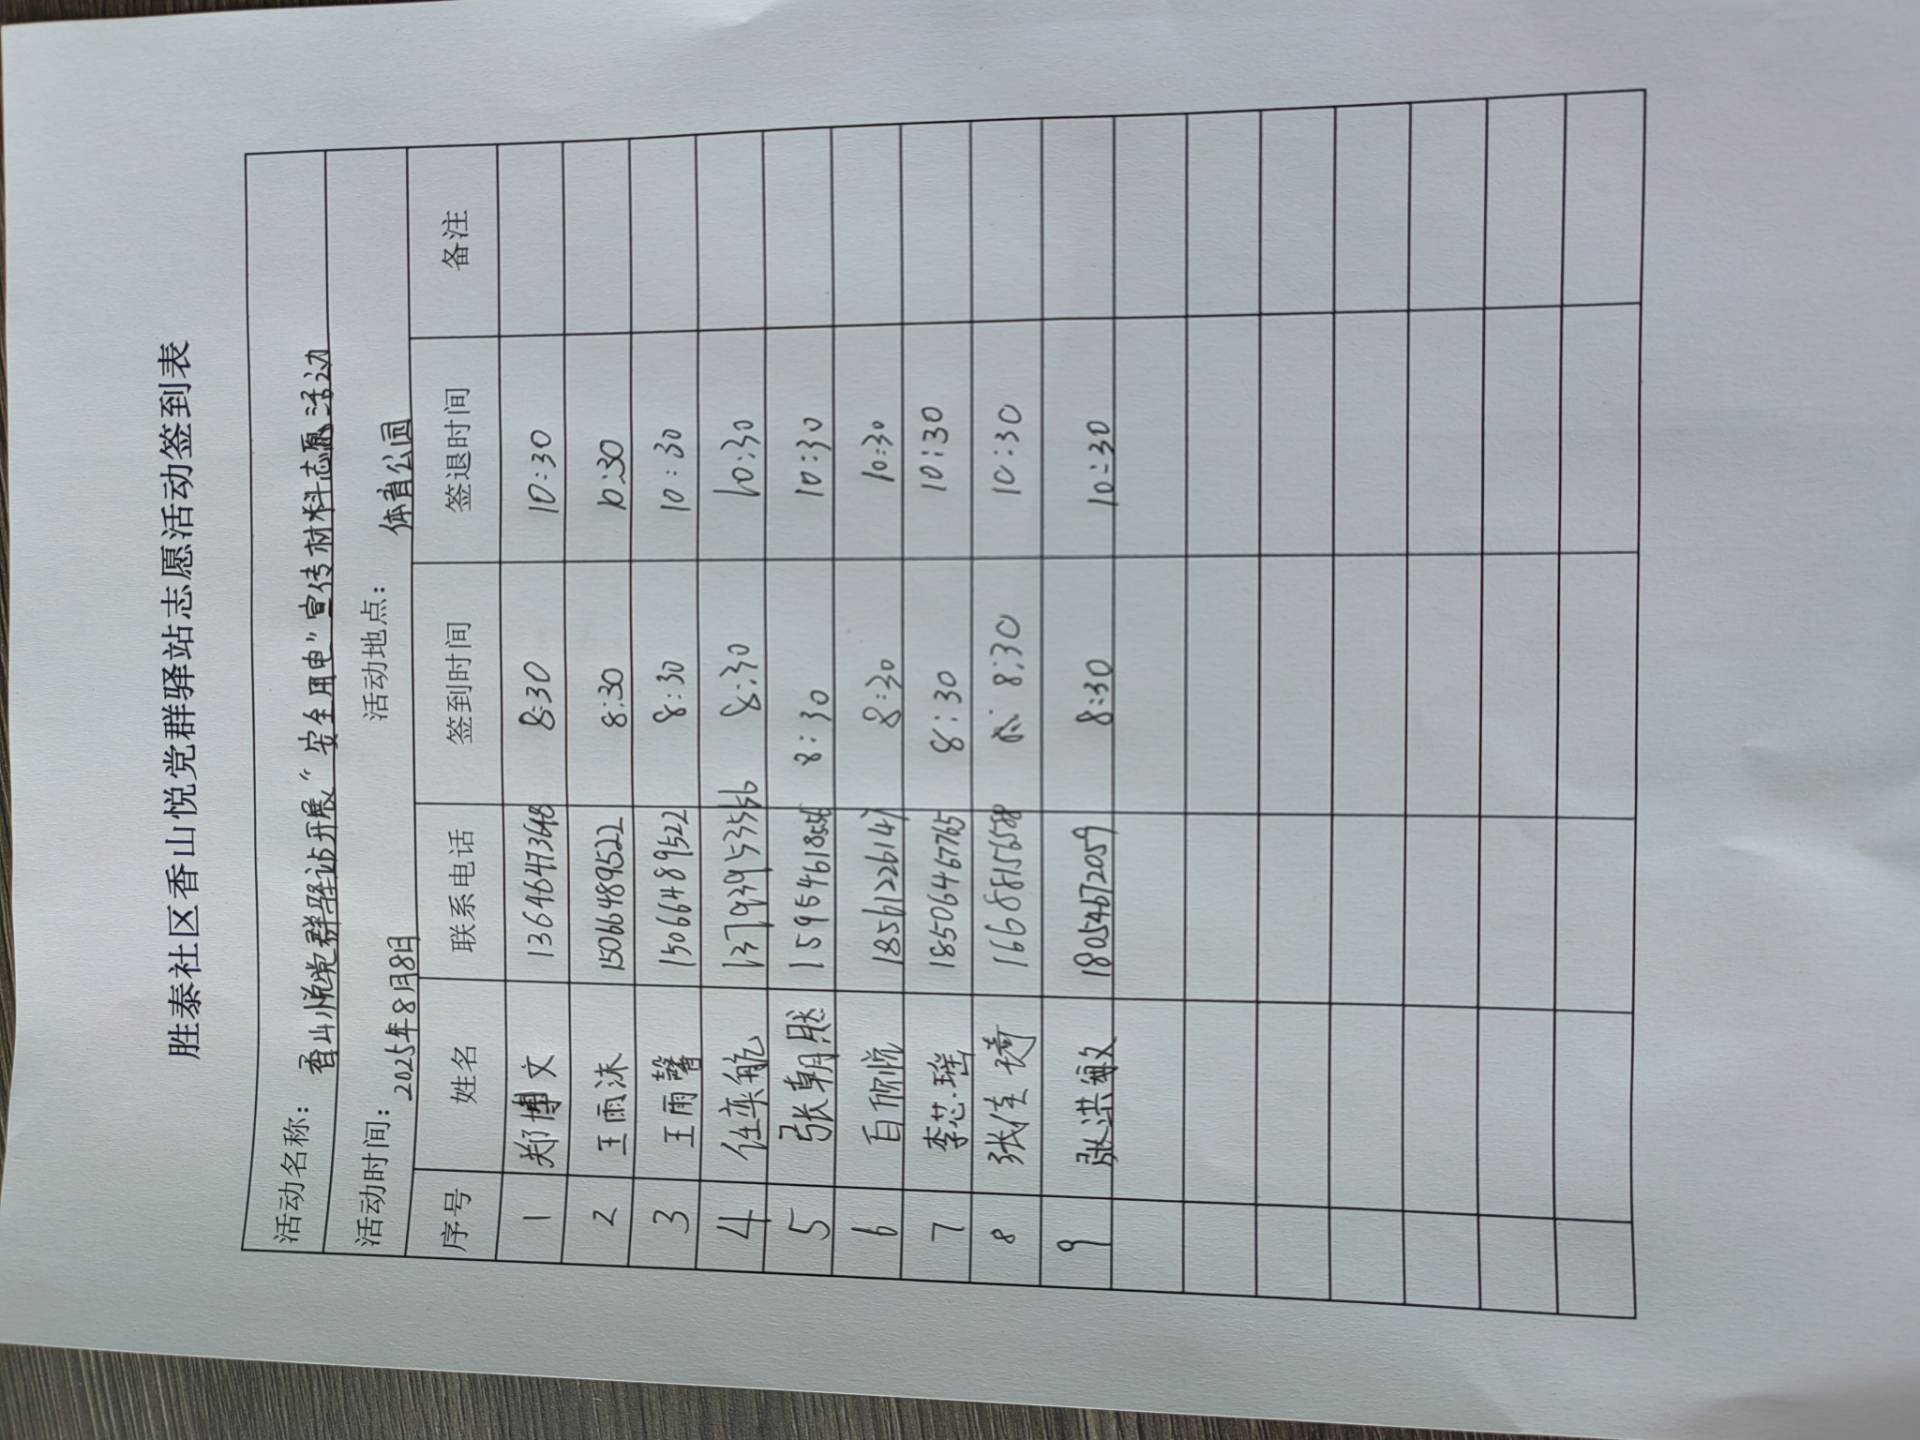 胜泰社区香山悦党群驿站志愿活动签到表
活动名称： 香山悦党群驿站开展“安全用电”宣传材料志愿活动
活动时间： 2025年8月8日 活动地点： 体育公园
序号 姓名 联系电话 签到时间 签退时间 备注
1 郑博文 13646473648 8:30 10:30
2 王雨沫 15066489522 8:30 10:30
3 王雨馨 15066489522 8:30 10:30
4 任奕航 13793953556 8:30 10:30
5 张朝然 15954618556 8:30 10:30
6 白欣悦 18561226147 8:30 10:30
7 李芯瑶 18506467765 8:30 10:30
8 张佳琦 16688156588 8:30 10:30
9 张洪敏 18054672059 8:30 10:30